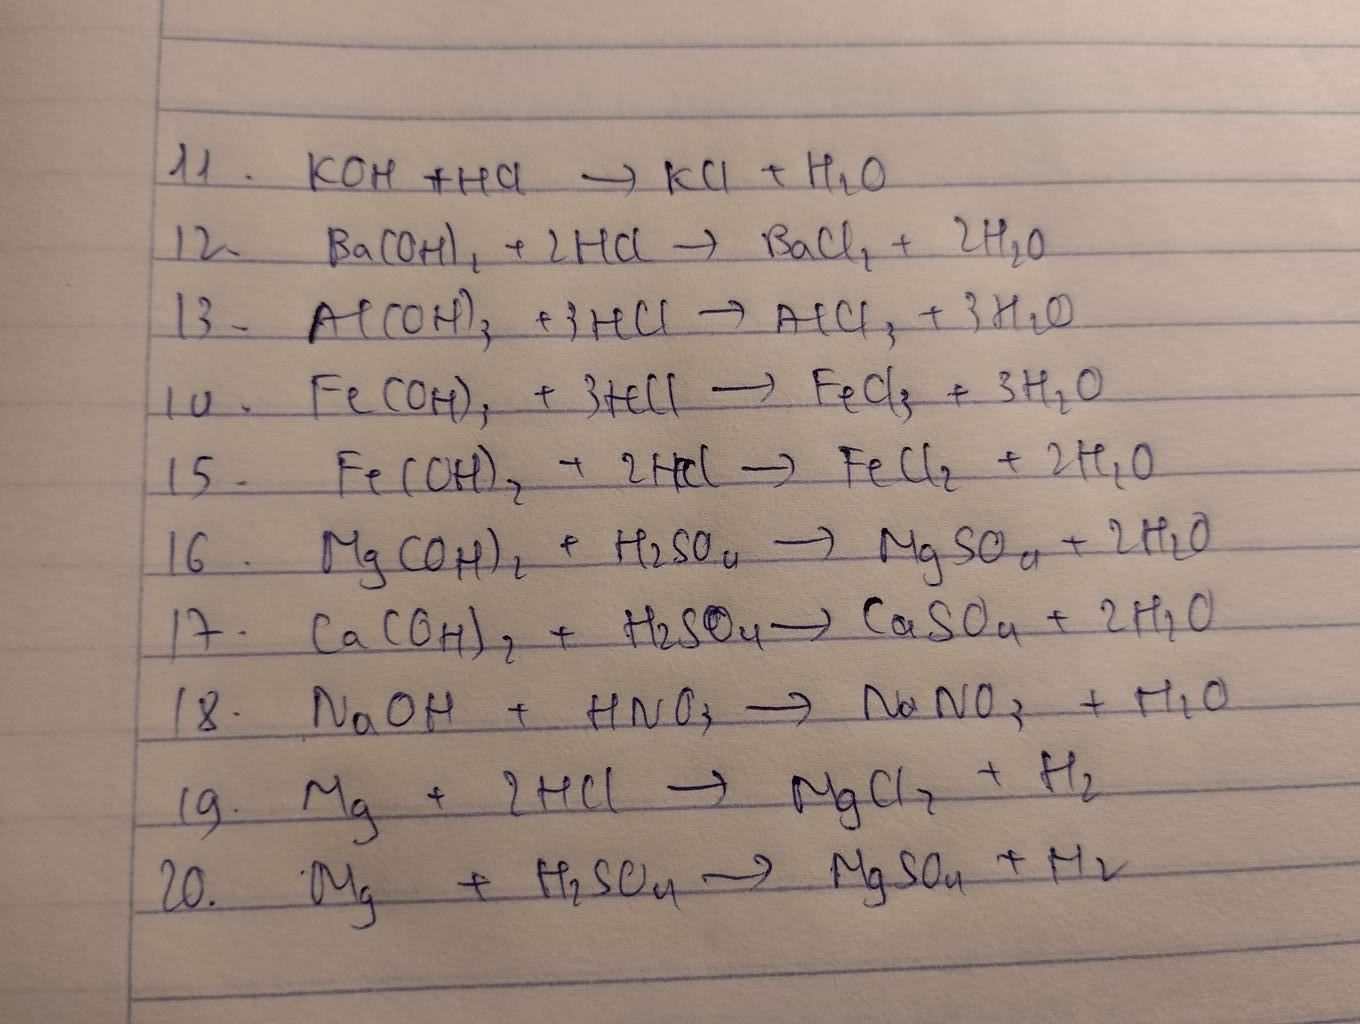 11. KOH + HCl → KCl + H₂O
12. Ba(OH)₂ + 2HCl → BaCl₂ + 2H₂O
13. Al(OH)₃ + 3HCl → AlCl₃ + 3H₂O
14. Fe(OH)₃ + 3HCl → FeCl₃ + 3H₂O
15. Fe(OH)₂ + 2HCl → FeCl₂ + 2H₂O
16. Mg(OH)₂ + H₂SO₄ → MgSO₄ + 2H₂O
17. Ca(OH)₂ + H₂SO₄ → CaSO₄ + 2H₂O
18. NaOH + HNO₃ → NaNO₃ + H₂O
19. Mg + 2HCl → MgCl₂ + H₂
20. Mg + H₂SO₄ → MgSO₄ + H₂